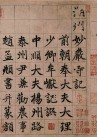 湖州
妙嚴寺記
前朝奉大夫大理
少卿牟巘記
中順大夫揚州路
泰州尹兼勸農事
趙孟頫書并篆額